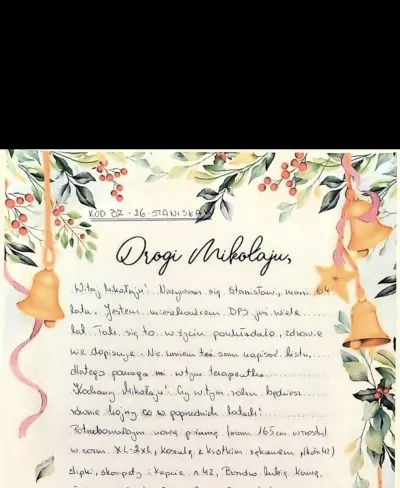 KOD BZ-26-STANISŁA
Drogi Mikołaju,
Witaj Mikołaju! Nazywam się Stanisław, mam 64
lata. Jestem mieszkańcem DPS już wiele
lat. Tak się to w życiu poukładało, zdrowie
nie dopisuje. Nie umiem też sam napisać listu,
dlatego pomaga mi w tym terapeutka.
Kochany Mikołaju! Czy w tym roku będziesz
równie hojny co w poprzednich latach?
Potrzebowałbym nową piżamę (mam 165 cm wzrostu)
w rozm. XL-2XL, koszulę z krótkim rękawem
slipki, skarpety i kapcie r. 42, Bardzo lubię kawę,